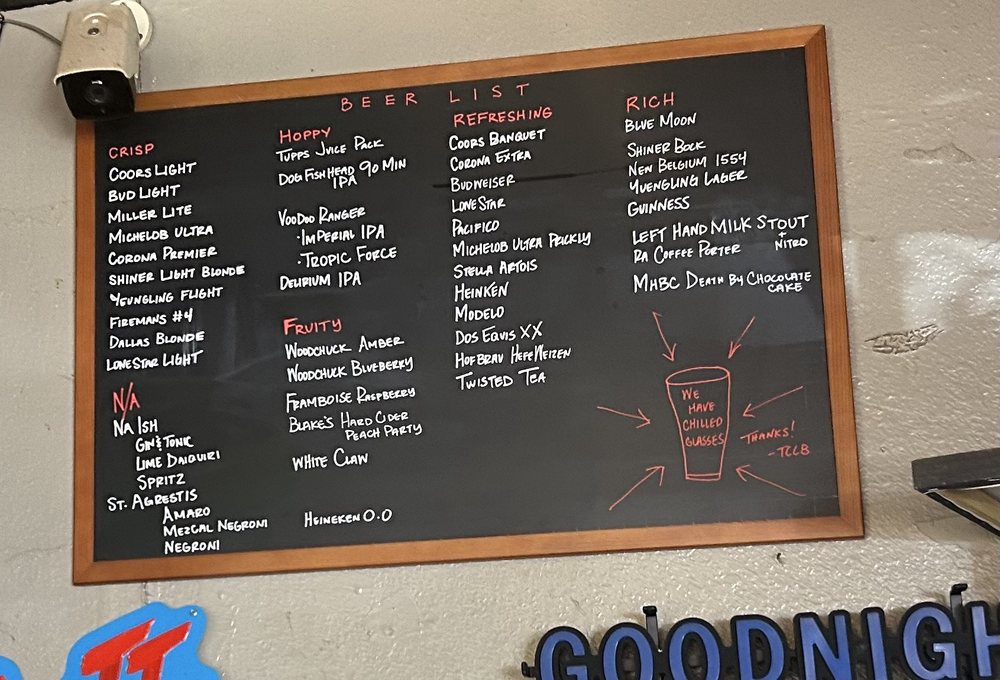 BEER LIST
CRISP
COORS LIGHT
BUD LIGHT
MILLER LITE
MICHELOB ULTRA
CORONA PREMIER
SHINER LIGHT BLONDE
YEUNGLING FLIGHT
FIREMANS #4
DALLAS BLONDE
LONESTAR LIGHT
N/A
NA ISH
GIN & TONIC
LIME DAIQUIRI
SPRITZ
ST. AGRESTIS
AMARO
MEZCAL NEGRONI
NEGRONI
HOPPY
TUPPS JUICE PACK
DOGFISHHEAD 90 MIN
IPA
VOODOO RANGER
·IMPERIAL IPA
·TROPIC FORCE
DELIRIUM IPA
FRUITY
WOODCHUCK AMBER
WOODCHUCK BLUEBERRY
FRAMBOISE RASPBERRY
BLAKE'S HARD CIDER
PEACH PARTY
WHITE CLAW
HEINEKEN 0.0
REFRESHING
COORS BANQUET
CORONA EXTRA
BUDWEISER
LONE STAR
PACIFICO
MICHELOB ULTRA PRICKLY
STELLA ARTOIS
HEINKEN
MODELO
DOS EQUIS XX
HOFBRAU HEFEWEIZEN
TWISTED TEA
RICH
BLUE MOON
SHINER BOCK
NEW BELGIUM 1554
YUENGLING LAGER
GUINNESS
LEFT HAND MILK STOUT
+ NITRO
RA COFFEE PORTER
MHBC DEATH BY CHOCOLATE
CAKE
WE
HAVE
CHILLED
GLASSES
THANKS!
-TCCB
TT
GOODNIGH